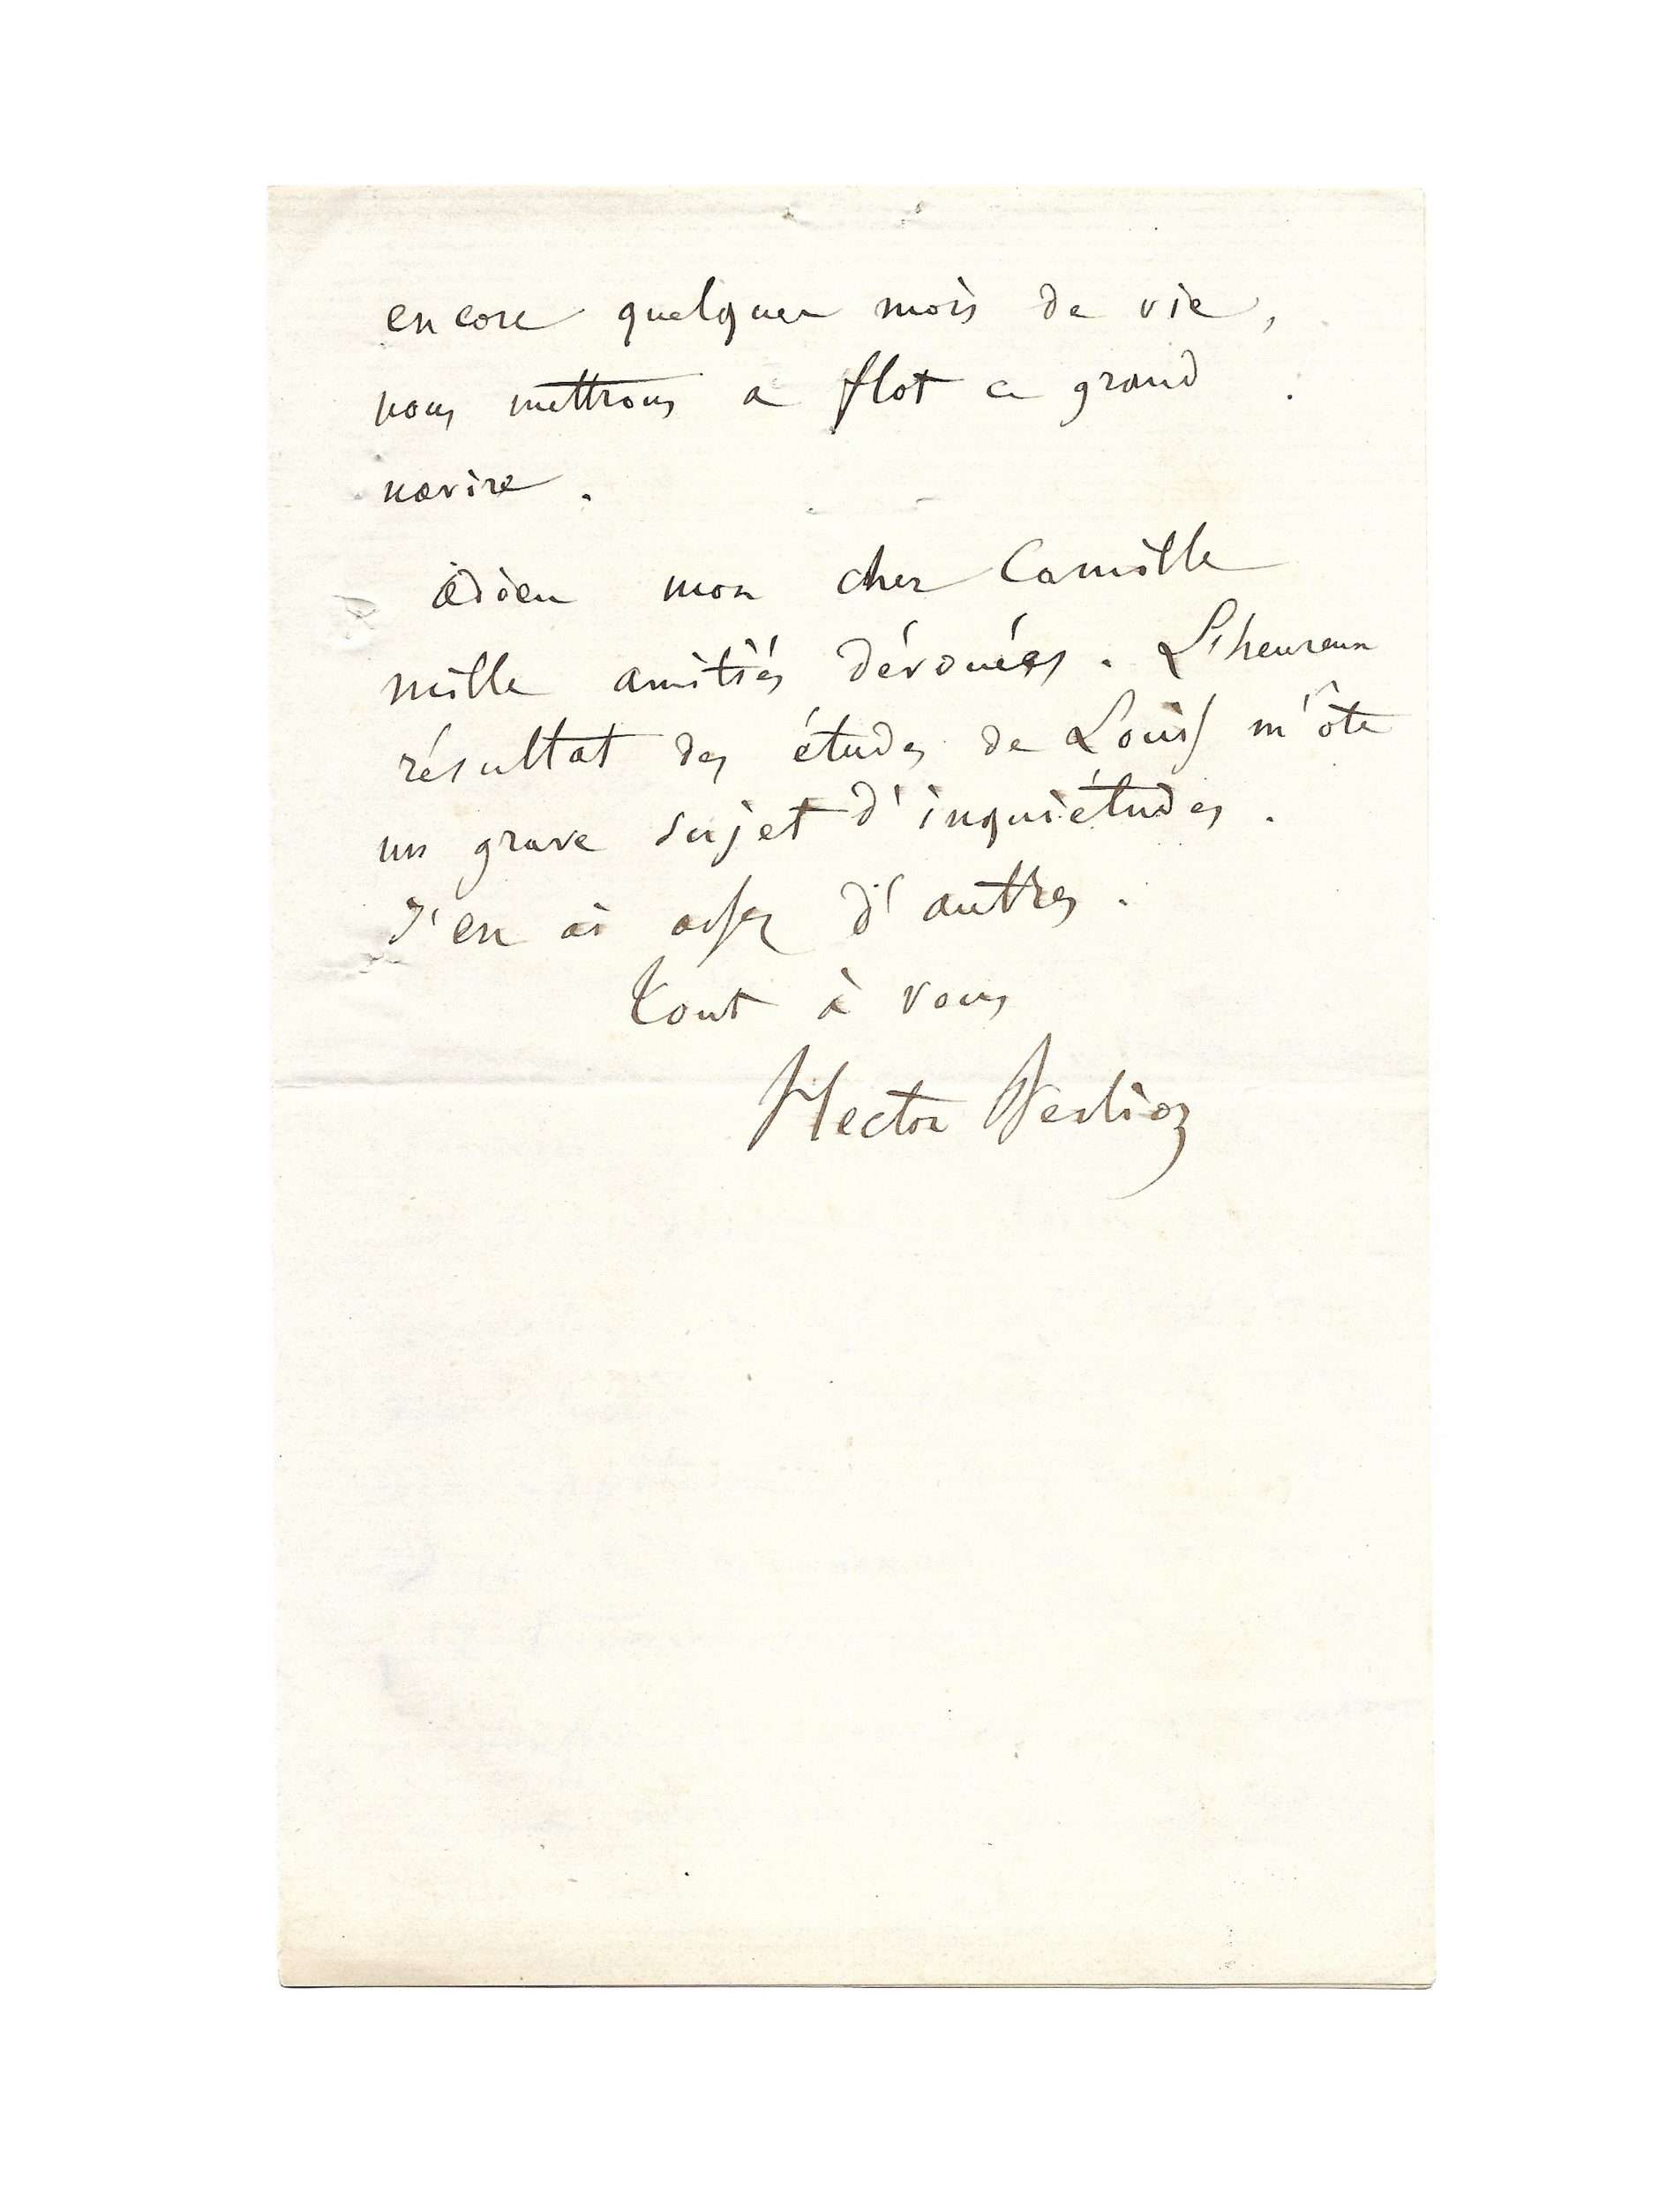 encore quelques mois de vie,
nous mettrons à flot ce grand
navire.
adieu mon cher Camille
mille amitiés dévouées. L'heureux
résultat des études de Louis m'ôte
un grave sujet d'inquiétudes.
J'en ai assez d'autres.
Tout à vous
Hector Berlioz